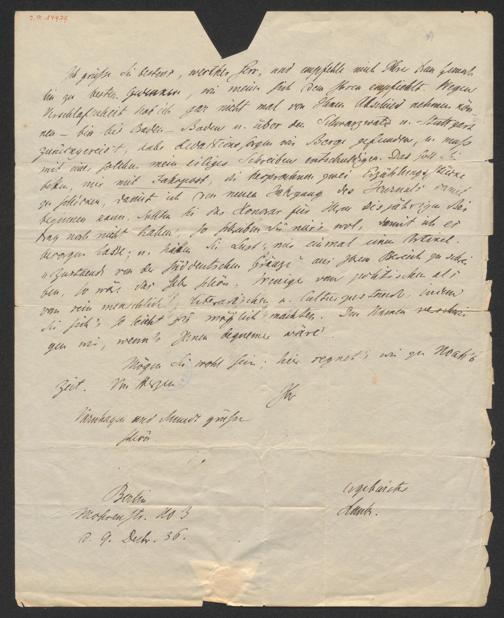 Ich grüße Sie bestens, werther Herr, und empfehle mich Ihrer Frau Gemah-
lin zu besten, wie meine sich dem Ihren empfiehlt. Wegen
hab' ich gar nicht mal von Ihnen Abschied nehmen kön-
nen – bin bis Baden-Baden u. über den Schwarzwald u. Stuttgart
zurückgereist, habe wie Berge gefunden, u. muß
mit mein eiliges Schreiben entschuldigen. Das soll Sie
bitten, mir mit Fahrpost, die versprochenen zwei
zu schicken, damit ich den neuen Jahrgang des damit
beginnen kann. Sollten Sie das Honorar für Ihren diesjährigen Bei-
trag noch nicht haben, so schreiben Sie mir's wol, damit ich es
besorgen lasse; u. hätten Sie Lust, mir einmal einen
von der süddeutschen Gränze aus Ihrem Bereich zu schrei-
ben, so wär' das sehr schön. Weniger vom politischen als
vom rein menschlich literarischen u. indem
Sie sich's so leicht wie möglich machten. Den Namen
gen wir, wenn's Ihnen bequemer wäre.
Mögen Sie wohl sein; hier regnet's wie zu Noah's
Zeit. Von Herzen
Ihr
Varnhagen und Mundt grüßen
schön
Berlin
Mohrenstr. No 3
d. 9. Dectr. 36.
ergebenster